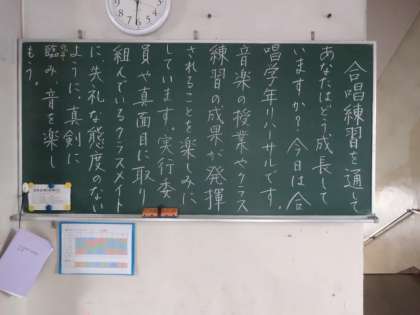 合唱練習を通して
あなたはどう成長して
いますか?今日は合
唱学年リハーサルです。
音楽の授業やクラス
練習の成果が発揮
されることを楽しみに
しています。実行委
員や真面目に取り
組んでいるクラスメイト
に、失礼な態度のない
ように、真剣に
臨み、音を楽し
もう。